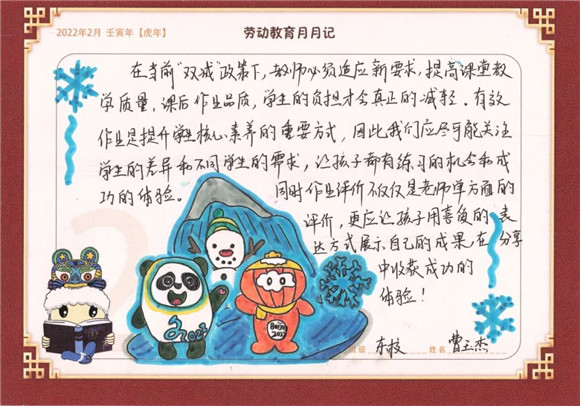 2022年2月 壬寅年【虎年】
劳动教育月月记
在当前"双减"政策下,教师必须适应新要求,提高课堂教
学质量、课后作业品质,学生的负担才会真正的减轻。有效
作业是提升学生核心素养的重要方式,因此我们应尽可能关注
学生的差异和不同学生的需求,让孩子都有练习的机会和成
功的体验。
同时作业评价不仅仅是老师单方面的
评价,更应让孩子用喜爱的表
达方式展示自己的成果,在分享
中收获成功的
体验!
班级 东校 姓名 曹玉杰